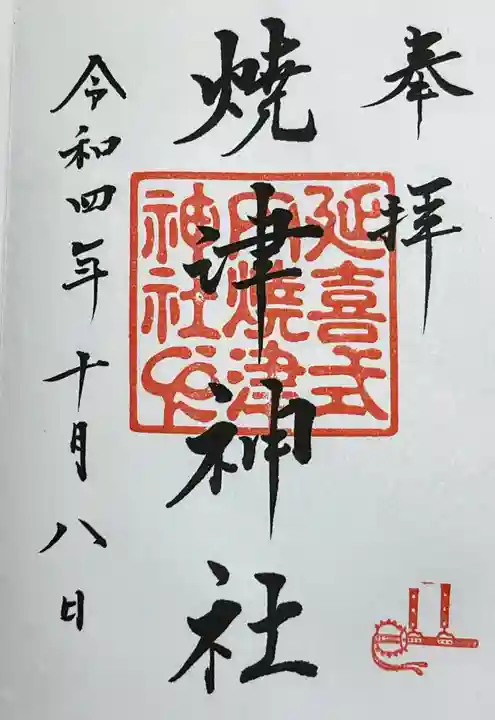 奉拝
燒津神社
延喜式
内燒津
神社之印
令和四年十月八日